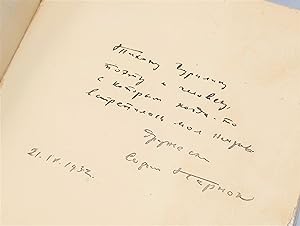 Тихону Чурилину
поэту и человеку,
с которым когда-то
встретилась моя
Дружески
София Парнок
21.IV.1932